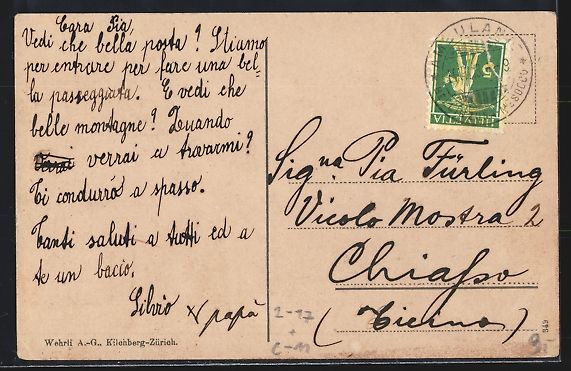 Cara Pia
Vedi che bella posta? Stiamo
per entrare per fare una bel-
la passeggiata. E vedi che
belle montagne? Quando
verrai a trovarmi?
Ti condurrò a spasso.
Tanti saluti a tutti ed a
te un bacio.
Silvio
papà
Wehrli A.-G., Kilchberg-Zürich.
AMBULANT
5
HELVETIA
Sig.na Pia Fürling
Vicolo Mostra 2
Chiasso
(Ticino)